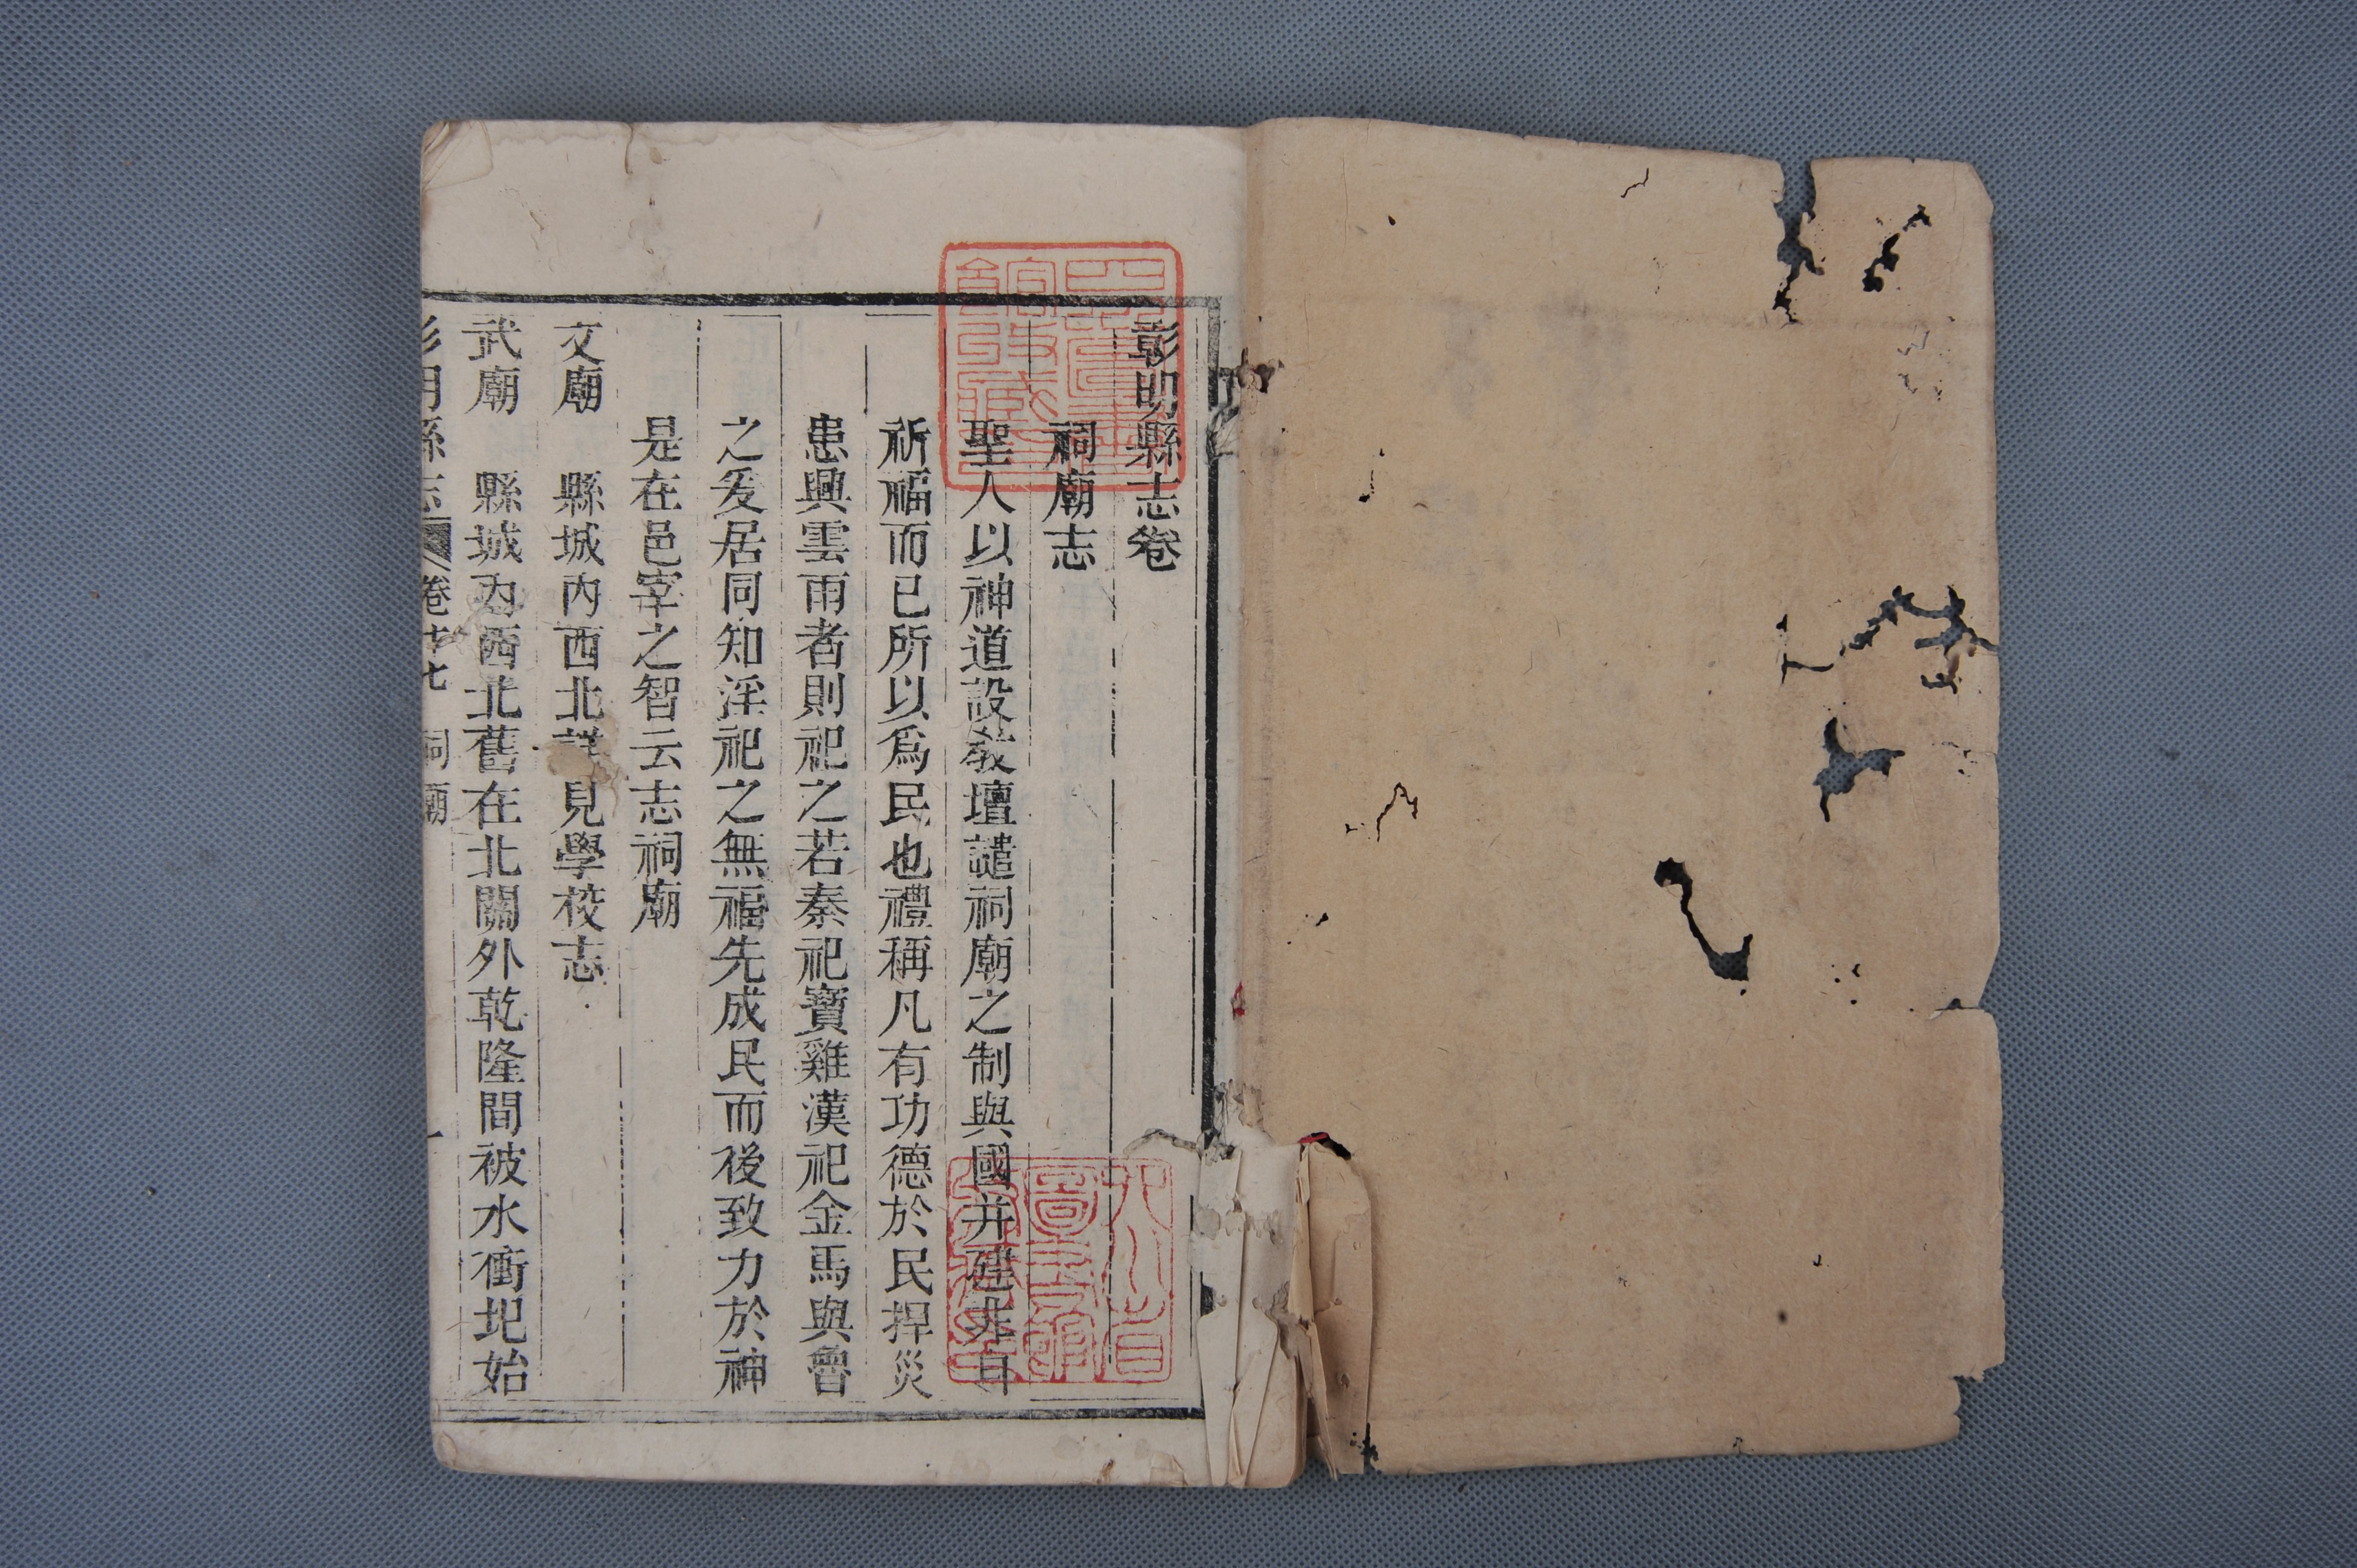 彰明縣志卷
祠廟志
聖人以神道設教壇譴祠廟之制與國并建非自
祈福而已所以爲民也禮稱凡有功德於民捍災
患興雲雨者則祀之若秦祀寶雞漢祀金馬與魯
之爰居同知淫祀之無福先成民而後致力於神
是在邑宰之智云志祠廟
文廟 縣城內西北詳見學校志
武廟 縣城內西北舊在北關外乾隆間被水衝圯始
彰明縣志 卷十七 祠廟 一